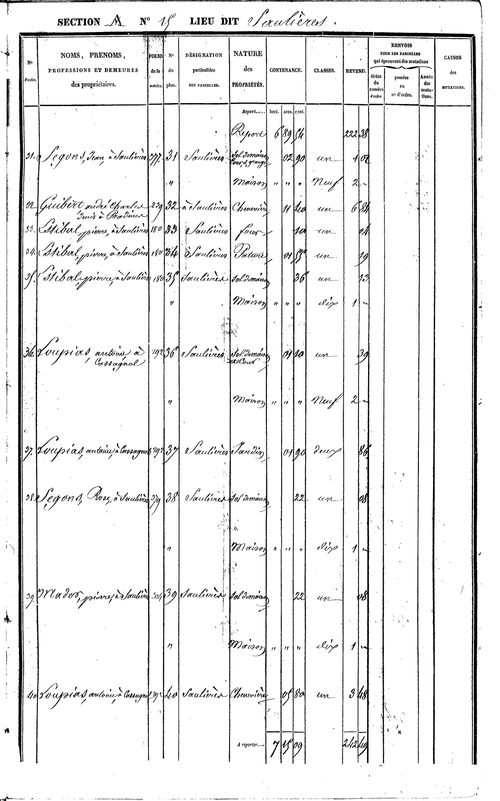 SECTION A N° 15 LIEU DIT Saulières.
N° d'ordre.
NOMS, PRENOMS, PROFESSIONS ET DEMEURES des propriétaires.
FOLIO de la matrice.
N° du plan.
DÉSIGNATION particulière DES PARCELLES.
NATURE des PROPRIÉTÉS.
CONTENANCE.
CLASSES.
REVENU.
RENVOIS POUR LES PARCELLES qui éprouvent des mutations
CAUSES des MUTATIONS.
Report..... hect. ares. cent.
Report 6 89 54 222 38
31. Segons, Jean, à Saulières 277 31 Saulières Sol de maison 02 90 un 1 02
" Maison " " " Neuf 2 "
32 Guibert andré Charles 239 32 à Saulières Chenevière 11 40 un 6 84
33. Estibal, pierre, à Saulières 180 33 Saulières Four 10 un 04
34. Estibal, pierre, à Saulières 180 34 Saulières Pature 01 55 un 19
35. Estibal, pierre, à Saulières 180 35 Saulières Sol de maison 36 un 13
" Maison " " " dix 1 "
36. Loupias, antoine, à Cassagnol 292 36 Saulières Sol de maison et Cour 01 10 un 39
" Maison " " " Neuf 2 "
37. Loupias, antoine, à Cassagnol 292 37 Saulières Jardin 01 90 deux 86
38. Segons, Rose, à Saulières 279 38 Saulières Sol de maison 22 un 08
" Maison " " " dix 1 "
39. Mador, pierre, à Saulières 39 Saulières Sol de maison 22 un 08
" Maison " " " dix 1 "
40 Loupias, antoine, à Cassagnol 292 40 Saulières Chenevière 05 80 un 3 48
A reporter..... 7 15 09 242 49